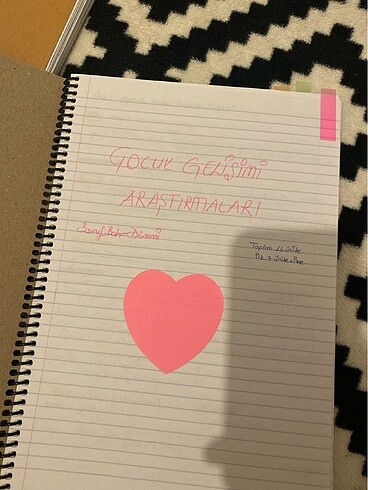 ÇOCUK GELİŞİMİ
ARAŞTIRMALARI
3.sınıf Bahar Dönemi
Toplam 14 ünite
İlk 7 ünite vize.